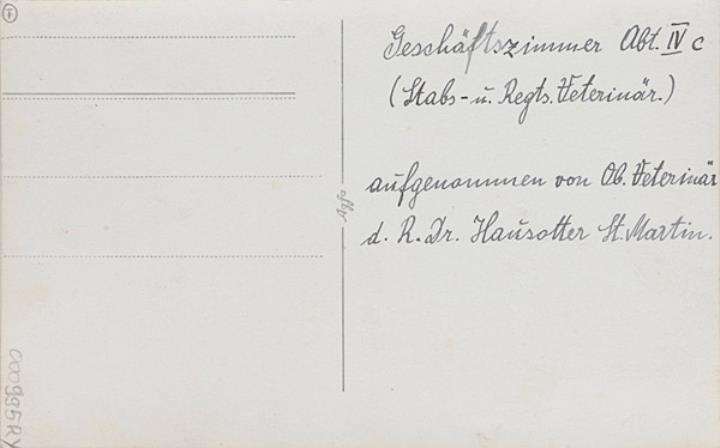 Geschäftszimmer Abt. IV c
(Stabs- u. Regts. Veterinär.)
aufgenommen von Ob. Veterinär
d. R. Dr. Hausotter St. Martin.
Agfa
000995RV